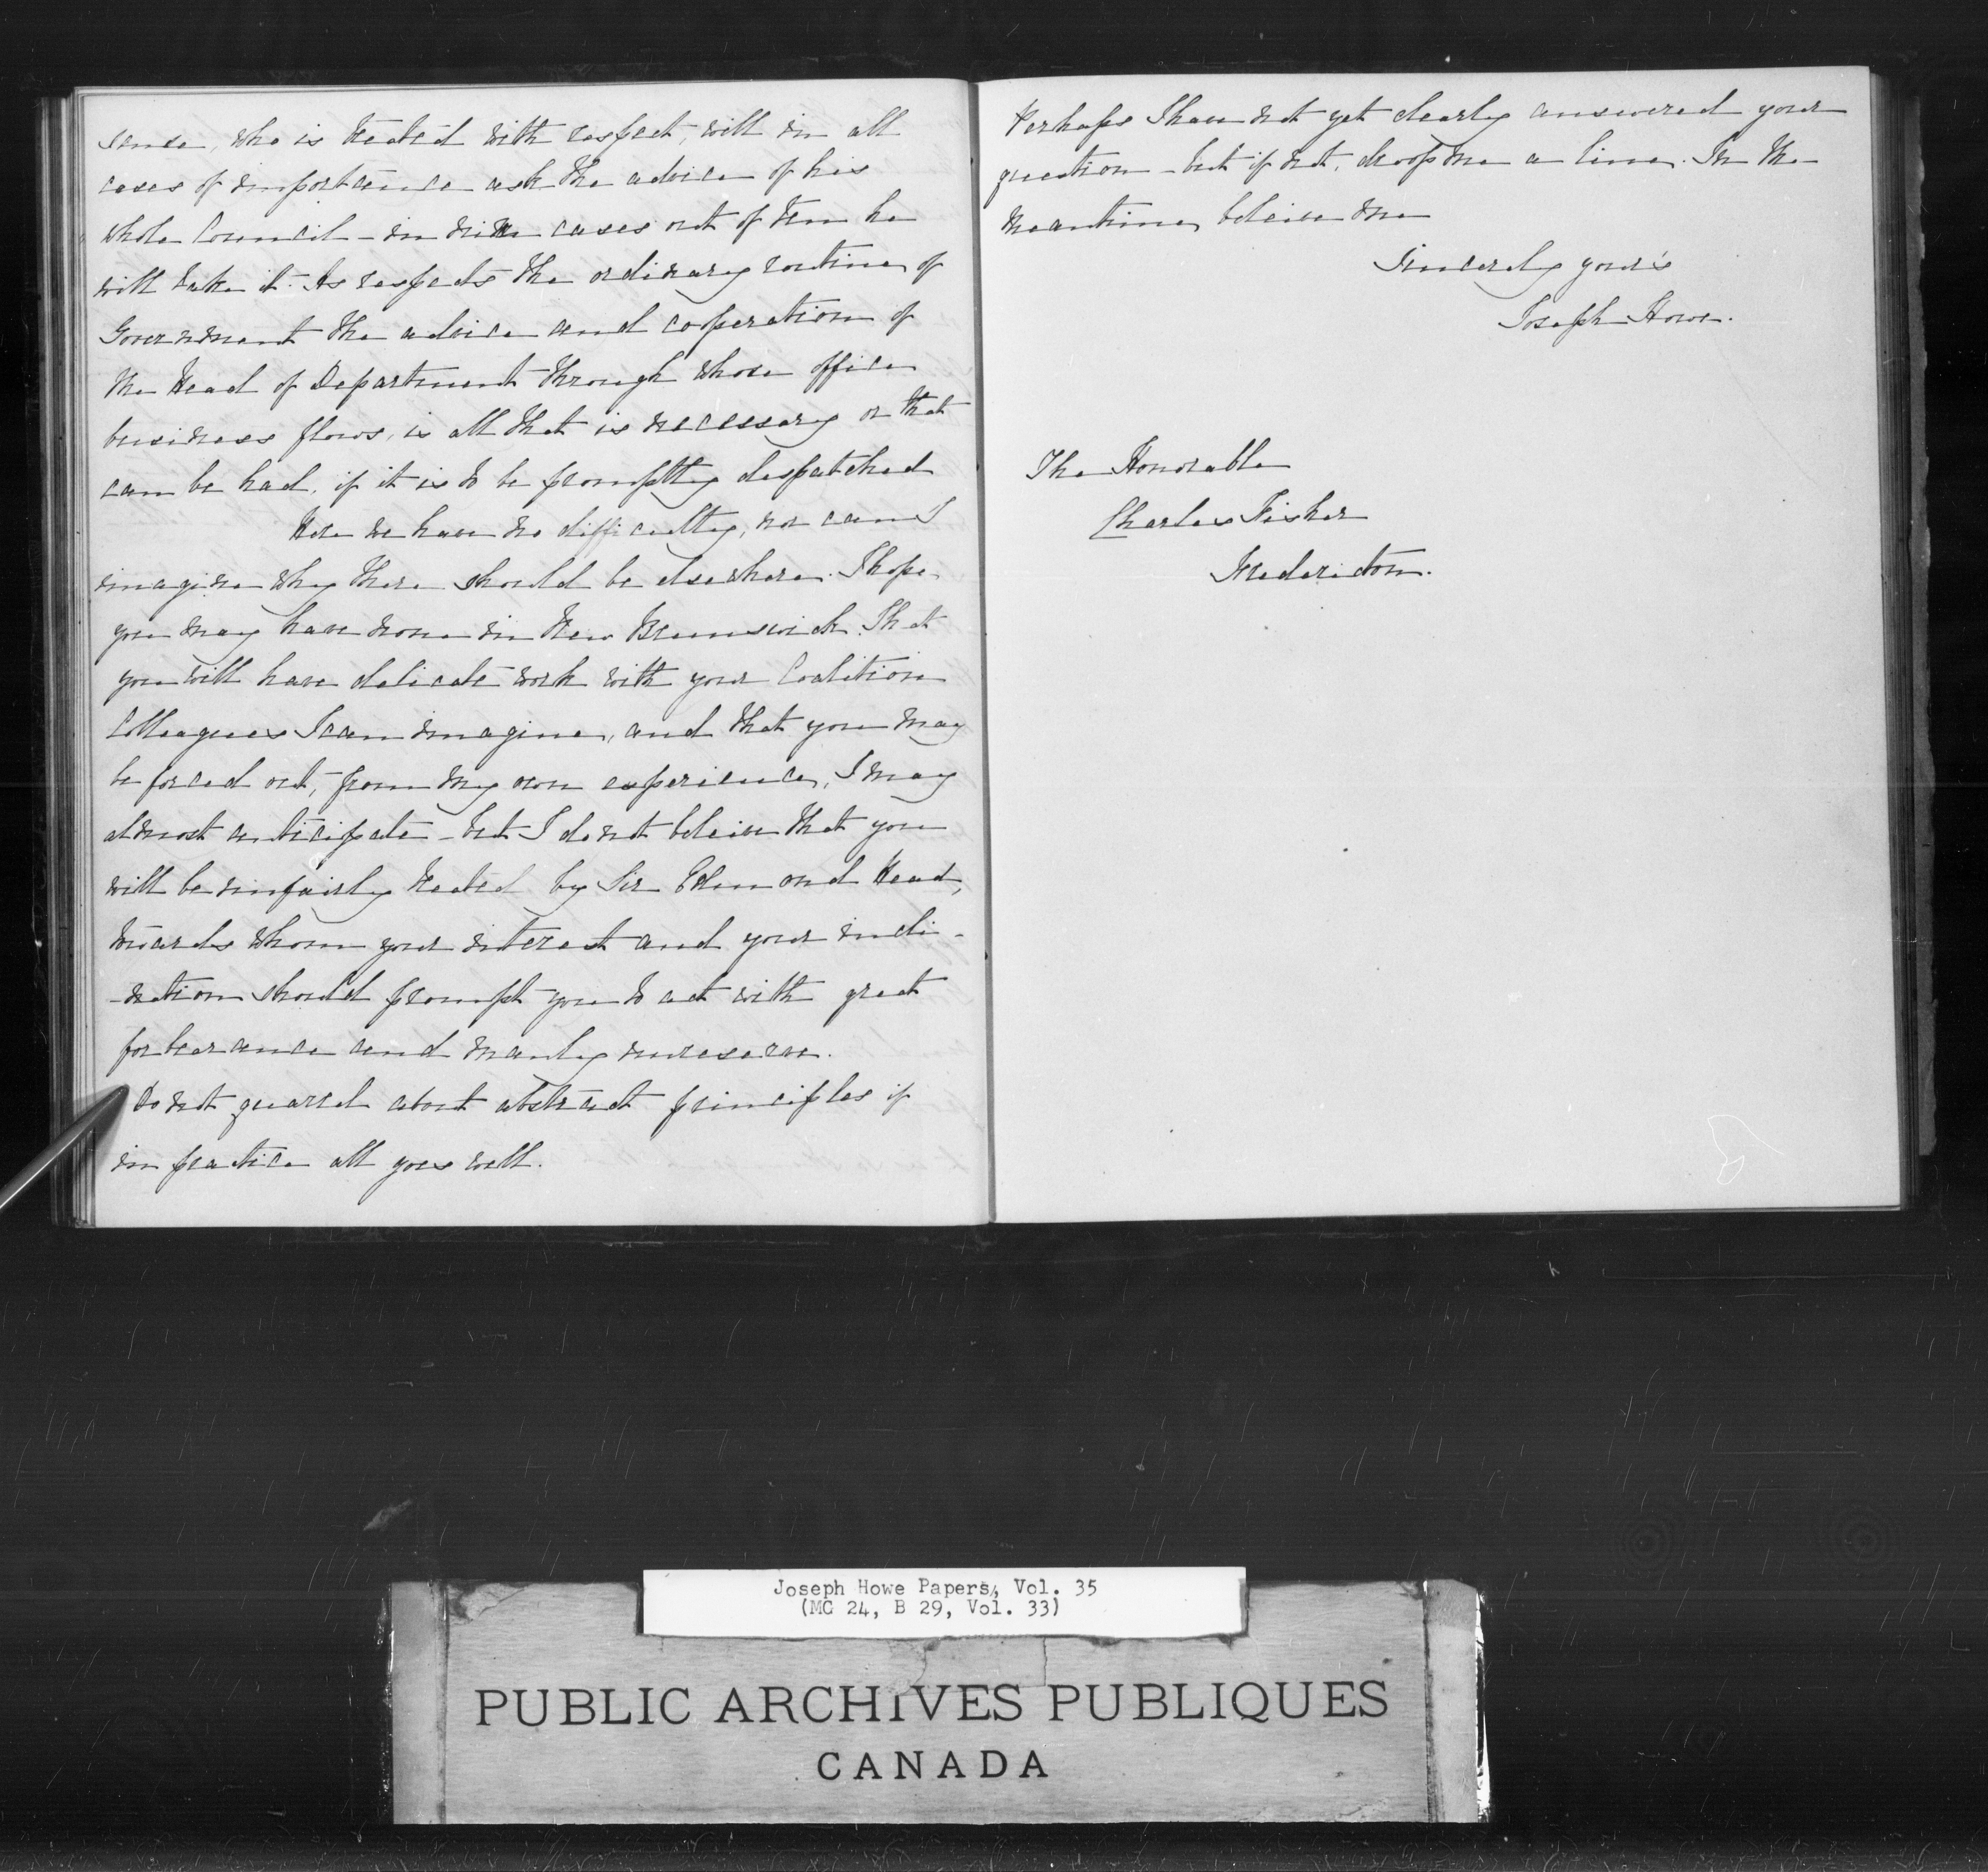 sense, who is treated with respect, will in all
cases of importance ask the advice of his
whole Council - in nine cases out of ten he
will take it. As respects the ordinary routine of
Government the advice and cooperation of
the Head of Department through whose office
business flows, is all that is necessary or that
can be had, if it is to be promptly despatched
Here we have no difficulty, nor can I
imagine why there should be elsewhere. I hope
you may have none in New Brunswick. That
you will have delicate work with your Coalition
Colleagues I can imagine, and that you may
be forced out, from my own experience, I may
almost anticipate - but I do not beleive that you
will be unfairly treated by Sir Edmond Head,
towards whom your interest and your incli-
-nation should prompt you to act with great
forbearance and manly unreserve.
Do not quarrel about abstract principles if
in practice all goes well.
Perhaps I have not yet clearly answered your
question - but if not, drop me a line. In the
meantime, beleive me
Sincerely your's
Joseph Howe.
The Honorable
Charles Fisher
Fredericton.
Joseph Howe Papers, Vol. 35
(MG 24, B 29, Vol. 33)
PUBLIC ARCHIVES PUBLIQUES
CANADA